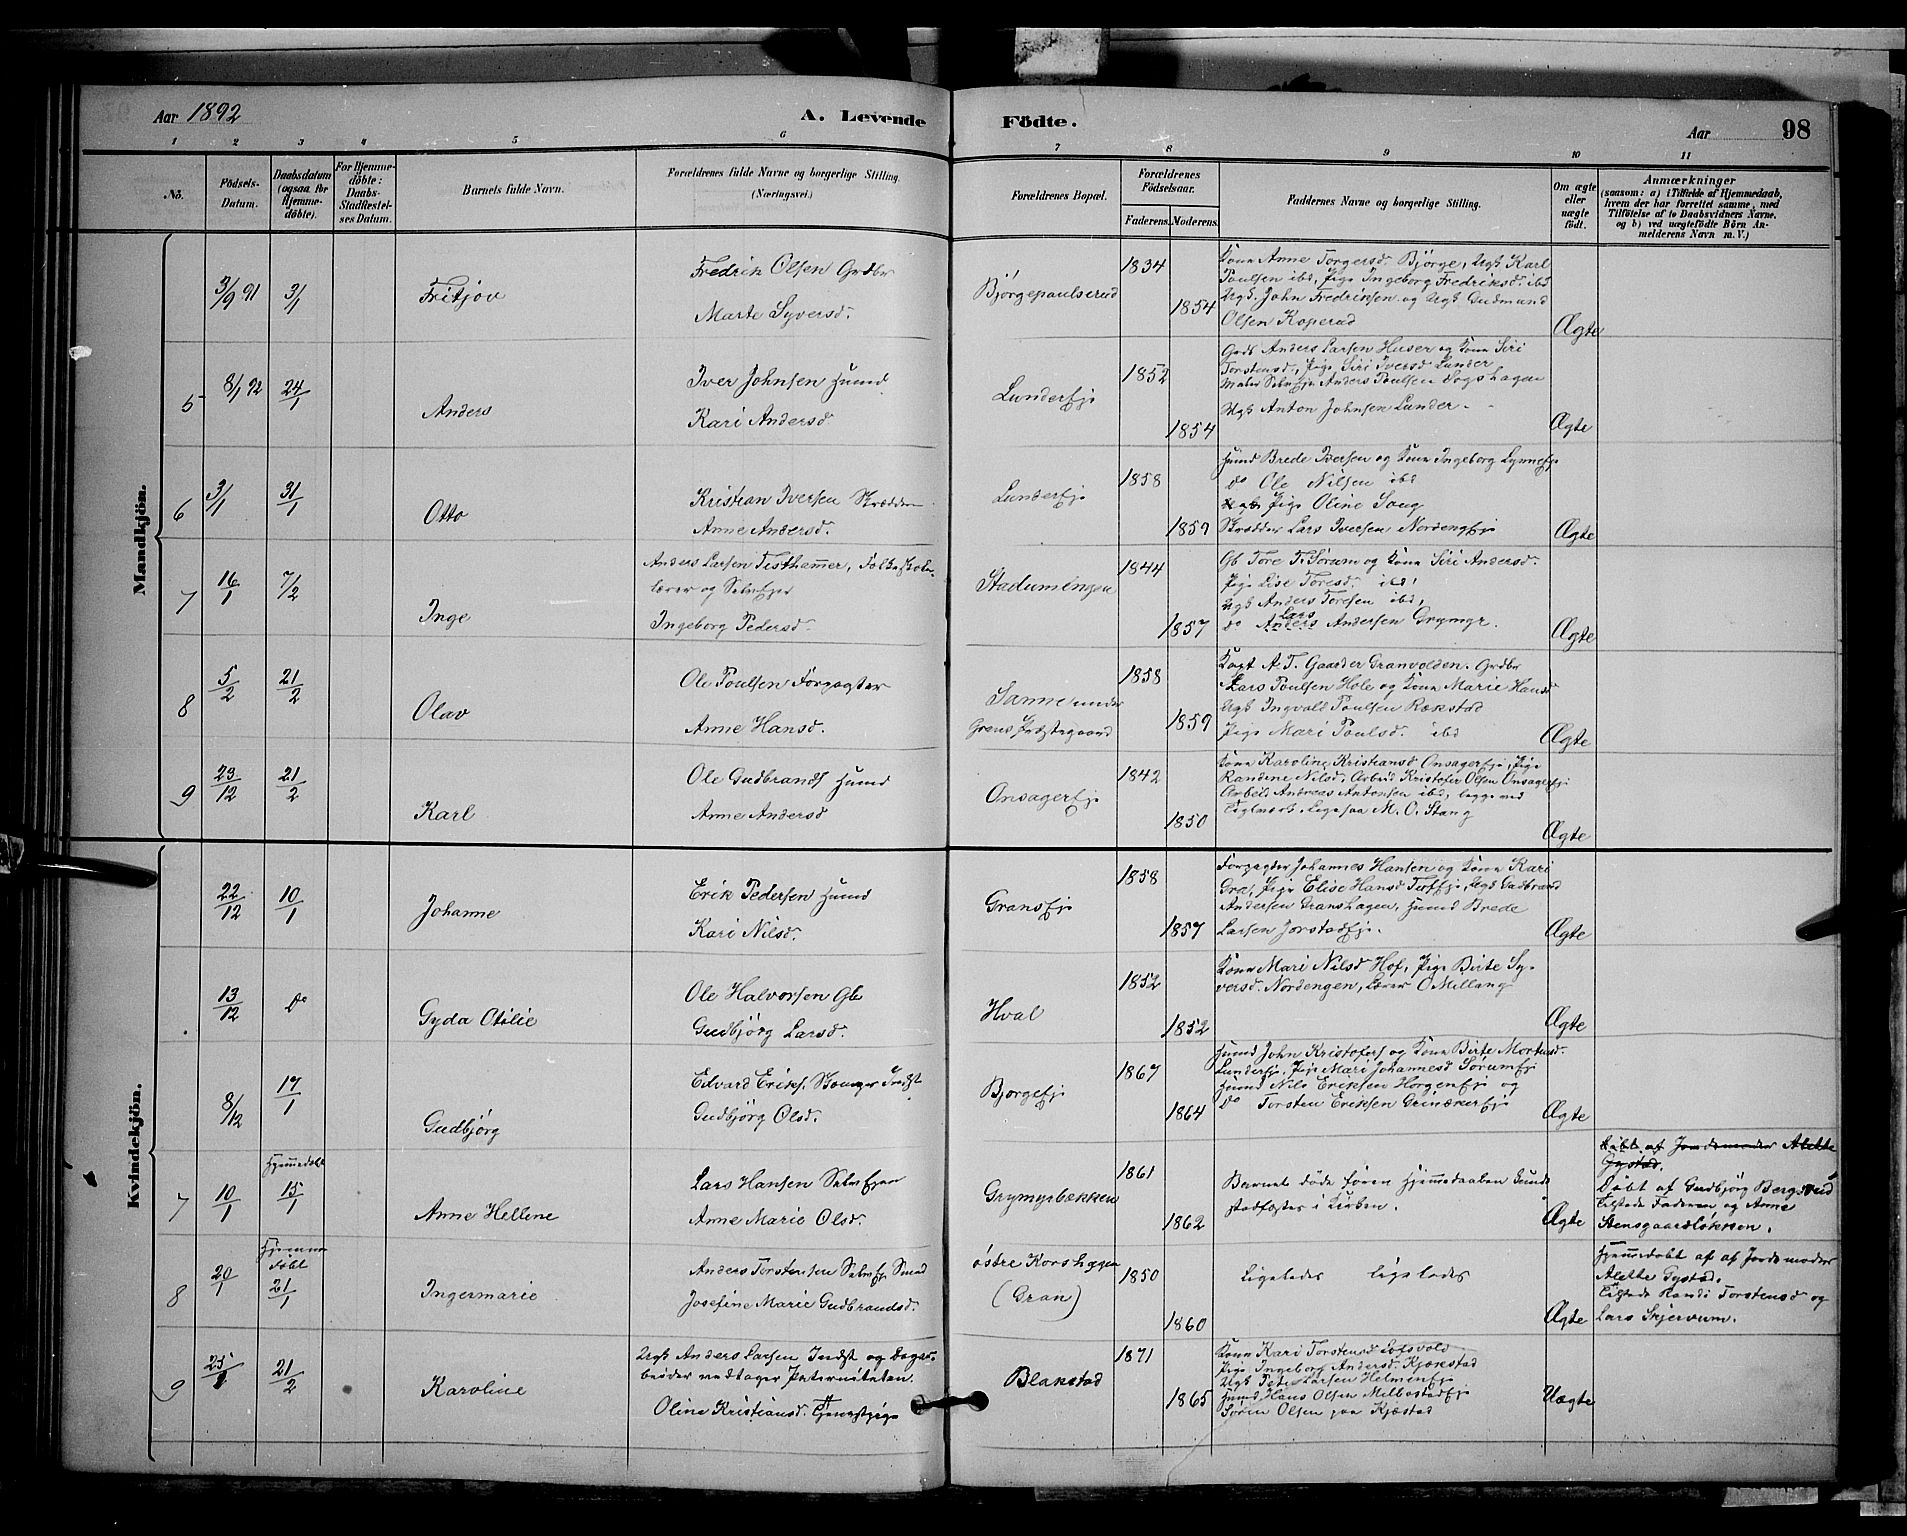 Aar 1892
A. Levende
Födte.
Aar
98
1 2 3 4 5 6 7 8 9 10 11
No.
Födsels-
Datum.
Daabsdatum
(ogsaa for
Hjemme-
döbte).
For Hjemme-
döbte:
Daabs-
Stadfæstel-
ses Datum.
Barnets fulde Navn.
Forældrenes fulde Navne og borgerlige Stilling.
(Næringsvei.)
Forældrenes Bopæl.
Forældrenes
Födselsaar.
Faderens.
Moderens.
Faddernes Navne og borgerlige Stilling.
Om ægte
eller
uægte
födt.
Anmærkninger
(saasom: a) i Tilfælde af Hjemmedaab,
hvem der har forrettet samme, med
Tilföielse af to Daabsvidners Navne,
og b) ved uægtefödte Börn An-
melderens Navn m. V.)
Mandkjön.
3/9 91
3/1
Fritjov
Fredrik Olsen Grdbr
Marte Syversd.
Bjørgepaulserud
1834
1854
Kone Anne Torgersd. Bjørge, Ugk Karl
Poulsen ibd, Pige Ingeborg Fredriksd. ibd
Ugk. John Fredriksen og Ugk Gudmund
Olsen Koperud
Ægte
5
8/1 92
24/1
Anders
Iver Johnsen Husmd
Kari Andersd.
Lundereje
1852
1854
Grdb Anders Larsen Huser og Kone Siri
Torstensd, Pige Siri Iversd Lunder
Maler Selvej Anders Poulsen Sogshagen
Ugk Anton Johnsen Lunder.
Ægte
6
3/1
31/1
Otto
Kristian Iversen Skrædder
Anne Andersd.
Lunderejе
1858
1859
Husmd Brede Iversen og Kone Ingeborg Lynneeje
do Ole Nilsen ibd
Pige Oline Sang
Skrædder Lars Iversen Nordengeje
Ægte
7
16/1
7/2
Inge
Anders Larsen Testhammer, Folkeskole-
lærer og Selvejer
Ingeborg Pedersd.
Stadumengen
1844
1857
Gb Tore T. Sørum og Kone Siri Andersd.
Pige Lise Toresd. ibd,
Ugk Anders Toresen ibd,
Lars
do Anders Andersen Grymyr.
Ægte
8
5/2
21/2
Olav
Ole Poulsen Forpagter
Anne Hansd.
Sanne under
Grans Prestegaard
1858
1859
Kapt A. T. Gaarder Granvolden. Grdbr
Lars Poulsen Hole og Kone Marie Hansd
Ugk Ingvald Poulsen Rækstad
Pige Mari Poulsd. ibd
Ægte
9
23/12
21/2
Karl
Ole Gudbrands Husmd
Anne Andersd
Onsagereje
1842
1850
Kone Karoline Kristiansd Onsagereje, Pige
Randine Nilsd, Arbeid Kristofer Olsen Onsagereje
Arbeid Andreas Antonsen ibd, begge ved
Teglverk. Ligesaa M. O. Stang
Ægte
Kvindekjön.
22/12
10/1
Johanne
Erik Pedersen Husmd
Kari Nilsd.
Granseje
1858
1857
Forpagter Johannes Hansen og Kone Kari
Gran, Pige Elise Hansd Tofteje, Ugk Gudbrand
Andersen Granshagen, Husmd Brede
Larsen Jorstadeje.
Ægte
13/12
Do
Gyda Otilie
Ole Halvorsen Gb
Gudbjørg Larsd.
Hval
1852
1852
Kone Mari Nilsd Hof, Pige Birte Sy-
versd. Nordengen, Lærer O Mellang
Ægte
8/12
17/1
Gudbjørg
Edvard Eriks. Skomager Indst
Gudbjørg Olsd.
Bjørgeeje
1867
1864
Husmd John Kristofers og Kone Birte Mortensd.
Lundereje, Pige Mari Johannesd Sørumeje
Husmd Nils Eriksen Horgeneje og
do Torsten Eriksen Grinakereje
Ægte
7
10/1
Hjemmedøbt
15/1
Anne Hellene
Lars Hansen Selvejer
Anne Marie Olsd.
Grymyrbækken
1861
1862
Barnet døde føren Hjemmedaaben kunde
stadfæstes i Kirken.
Ægte
Døbt af Jordemoder Alette
Gystad.
Døbt af Gudbjørg Bergsrud
Tilstede Faderen og Anne
Stensgaardløkken.
8
20/1
Hjemme
døbt
21/1
Ingermarie
Anders Torstensen Selvej Smed
Josefine Marie Gudbrandsd.
østre Korshagen
(Gran)
1850
1860
Ligeledes ligeledes
Ægte
Hjemmedøbt af af Jordemoder
Alette Gystad.
Tilstede Randi Torstensd og
Lars Skjervum.
9
25/1
21/2
Karoline
Ugk Anders Larsen Indst og Dagar-
beider vedtager Paterniteten.
Oline Kristiansd. Tjenestpige
Blakstad
1871
1865
Kone Kari Torstensd Løtsvold
Pige Ingeborg Andersd. Kjækstad
Ugk Peter Larsen Helmineje
Husmd Hans Olsen Melbostadeje
Søren Olsen paa Kjæstad
Uægte